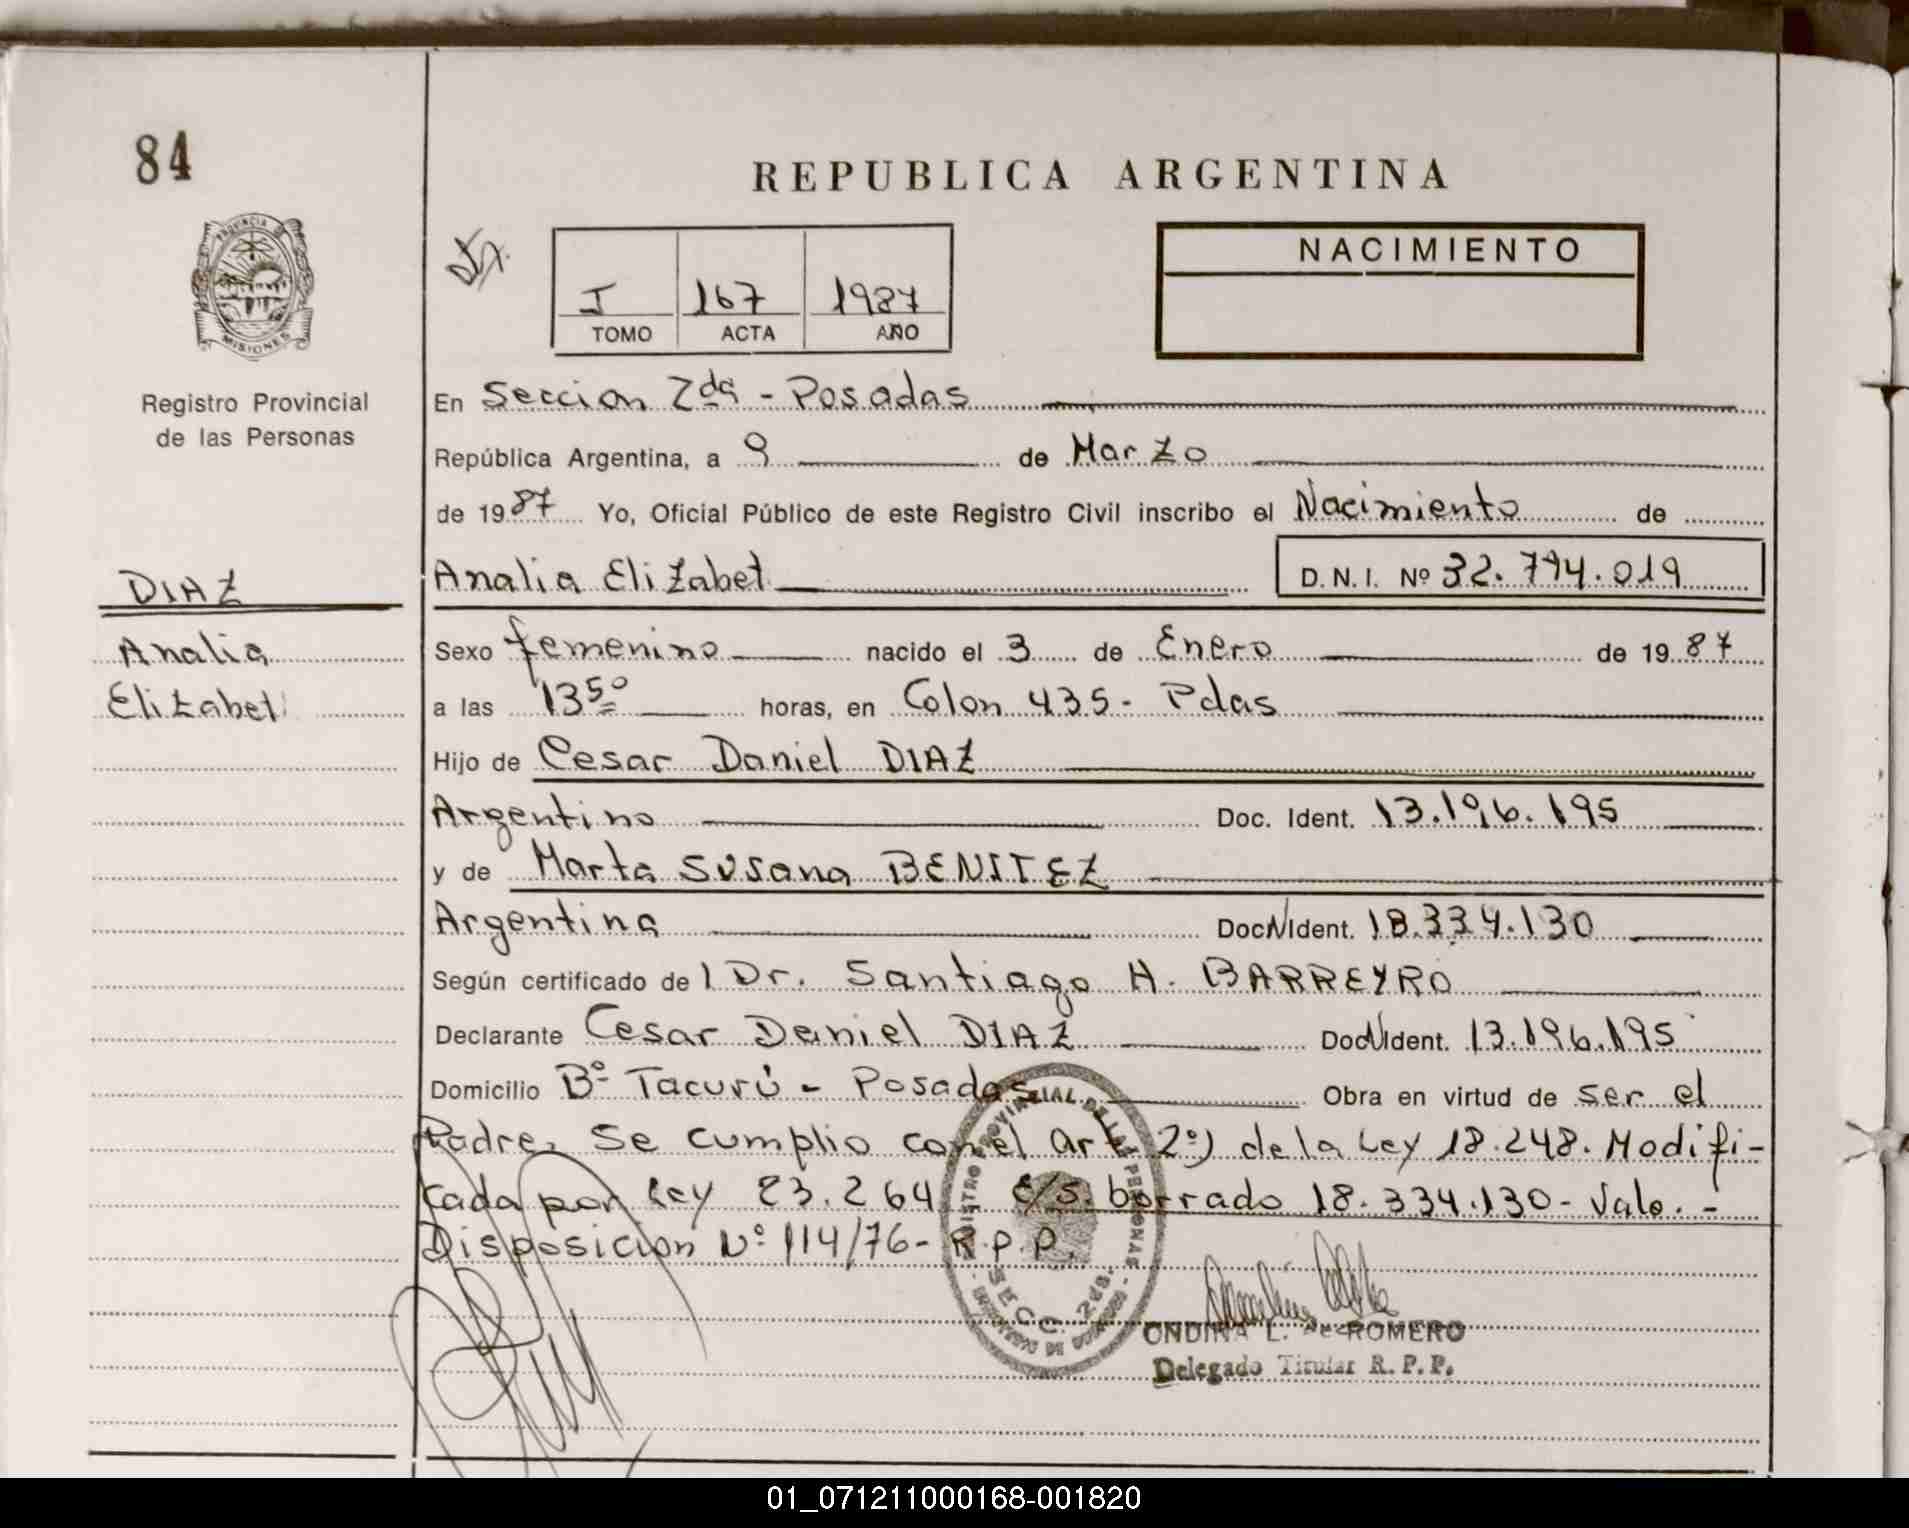 84
REPUBLICA ARGENTINA
PROVINCIA DE
MISIONES
Registro Provincial
de las Personas
I 167 1987
TOMO ACTA AÑO
NACIMIENTO
En Seccion 2da - Posadas
República Argentina, a 9 de Marzo
de 1987 Yo, Oficial Público de este Registro Civil inscribo el Nacimiento de
DIAZ
Analia
Elizabet
Analia Elizabet D.N.I. Nº 32.794.019
Sexo femenino nacido el 3 de Enero de 1987
a las 13 50 horas, en Colon 435 - Pdas
Hijo de Cesar Daniel DIAZ
Argentino Doc. Ident. 13.196.195
y de Marta Susana BENITEZ
Argentina Doc. Ident. 18.334.130
Según certificado de l Dr. Santiago H. BARREYRO
Declarante Cesar Daniel DIAZ Doc. Ident. 13.196.195
Domicilio Bº Tacurú - Posadas Obra en virtud de ser el
Padre. Se cumplio con el art 2º) de la Ley 18.248. Modifi-
cada por Ley 23.264. E/S. borrado 18.334.130 - Vale. -
Disposicion Nº 114/76 - R.P.P.
REGISTRO PROVINCIAL DE LAS PERSONAS
SECC. 2da.
ONDINA L. de ROMERO
Delegado Titular R.P.P.
01_071211000168-001820